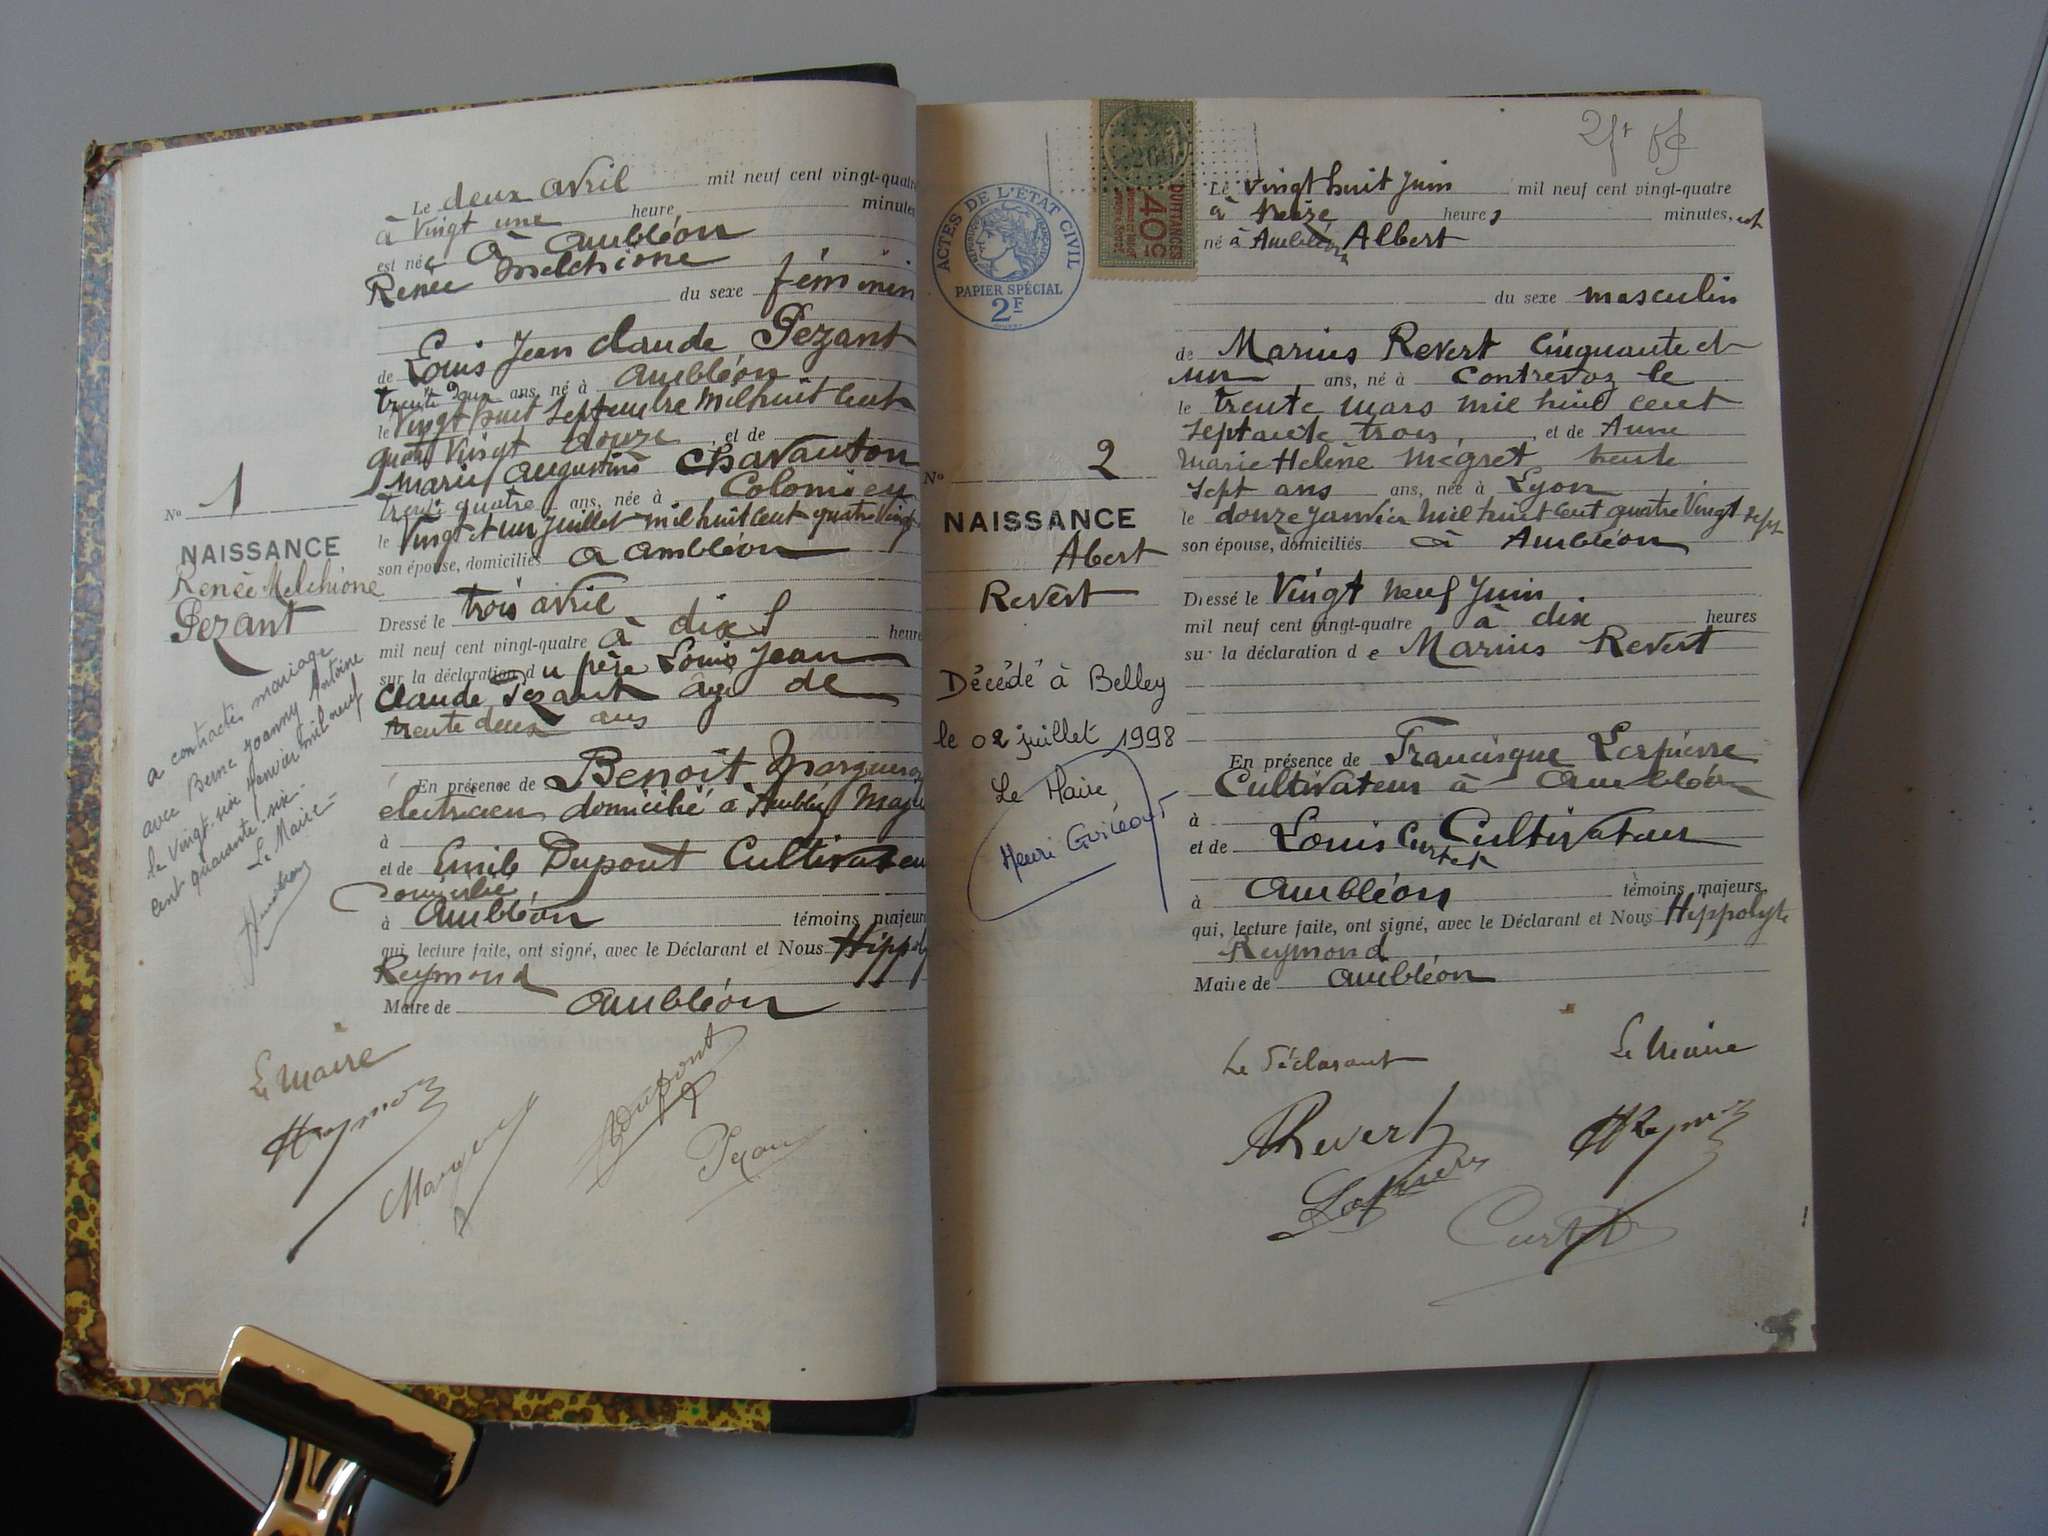 Le deux avril mil neuf cent vingt-quatre
à Vingt une heure minutes
est née à Ambléon
Renée Melchione
du sexe féminin
de Louis Jean Claude Pezant
trente deux ans, né à Ambléon
le Vingt huit Septembre Mil huit Cent
quatre Vingt douze, et de
Marie Augustine Chavanton
trente quatre ans, née à Colomieu
le Vingt et un Juillet mil huit Cent quatre Vingt
son épouse, domiciliés à Ambléon
Dressé le trois avril
mil neuf cent vingt-quatre à dix heure
sur la déclaration du père Louis Jean
Claude Pezant age de
trente deux ans
En présence de Benoit
electricien domicilié à
à
et de Emile Dupont Cultivateur
domicilié
à Ambléon témoins majeurs
qui, lecture faite, ont signé, avec le Déclarant et Nous Hippoly
Reymond
Maire de Ambléon
No 1
NAISSANCE
Renée Melchione
Pezant
a contracté mariage
avec Berne Joanny Antoine
le Vingt-six Janvier mil neuf
cent quarante-six-
Le Maire-
Le Maire
HReymond
Dupont
Pezant
2
ACTES DE L'ÉTAT CIVIL
PAPIER SPÉCIAL
2F
QUITTANCES
40c
Le Vingt huit Juin mil neuf cent vingt-quatre
à treize heures minutes, est
né à Ambléon Albert
du sexe masculin
de Marius Revert Cinquante et
un ans, né à Contrevoz le
le trente mars mil huit cent
septante trois, et de Anne
Marie Helène Mégret trente
sept ans ans, née à Lyon
le douze janvier Mil huit Cent quatre Vingt sept
son épouse, domiciliés à Ambléon
Dressé le Vingt neuf Juin
mil neuf cent vingt-quatre à dix heures
sur la déclaration de Marius Revert
En présence de Francisque Larpierre
Cultivateur à Ambléon
à
et de Louis Curtet Cultivateur
à Ambléon témoins majeurs,
qui, lecture faite, ont signé, avec le Déclarant et Nous Hippolyte
Reymond
Maire de Ambléon
No 2
NAISSANCE
Abert
Revert
Décédé à Belley
le 02 juillet 1998
Le Maire,
Henri
Le Déclarant
Le Maire
Revert
HReymond
Curtet